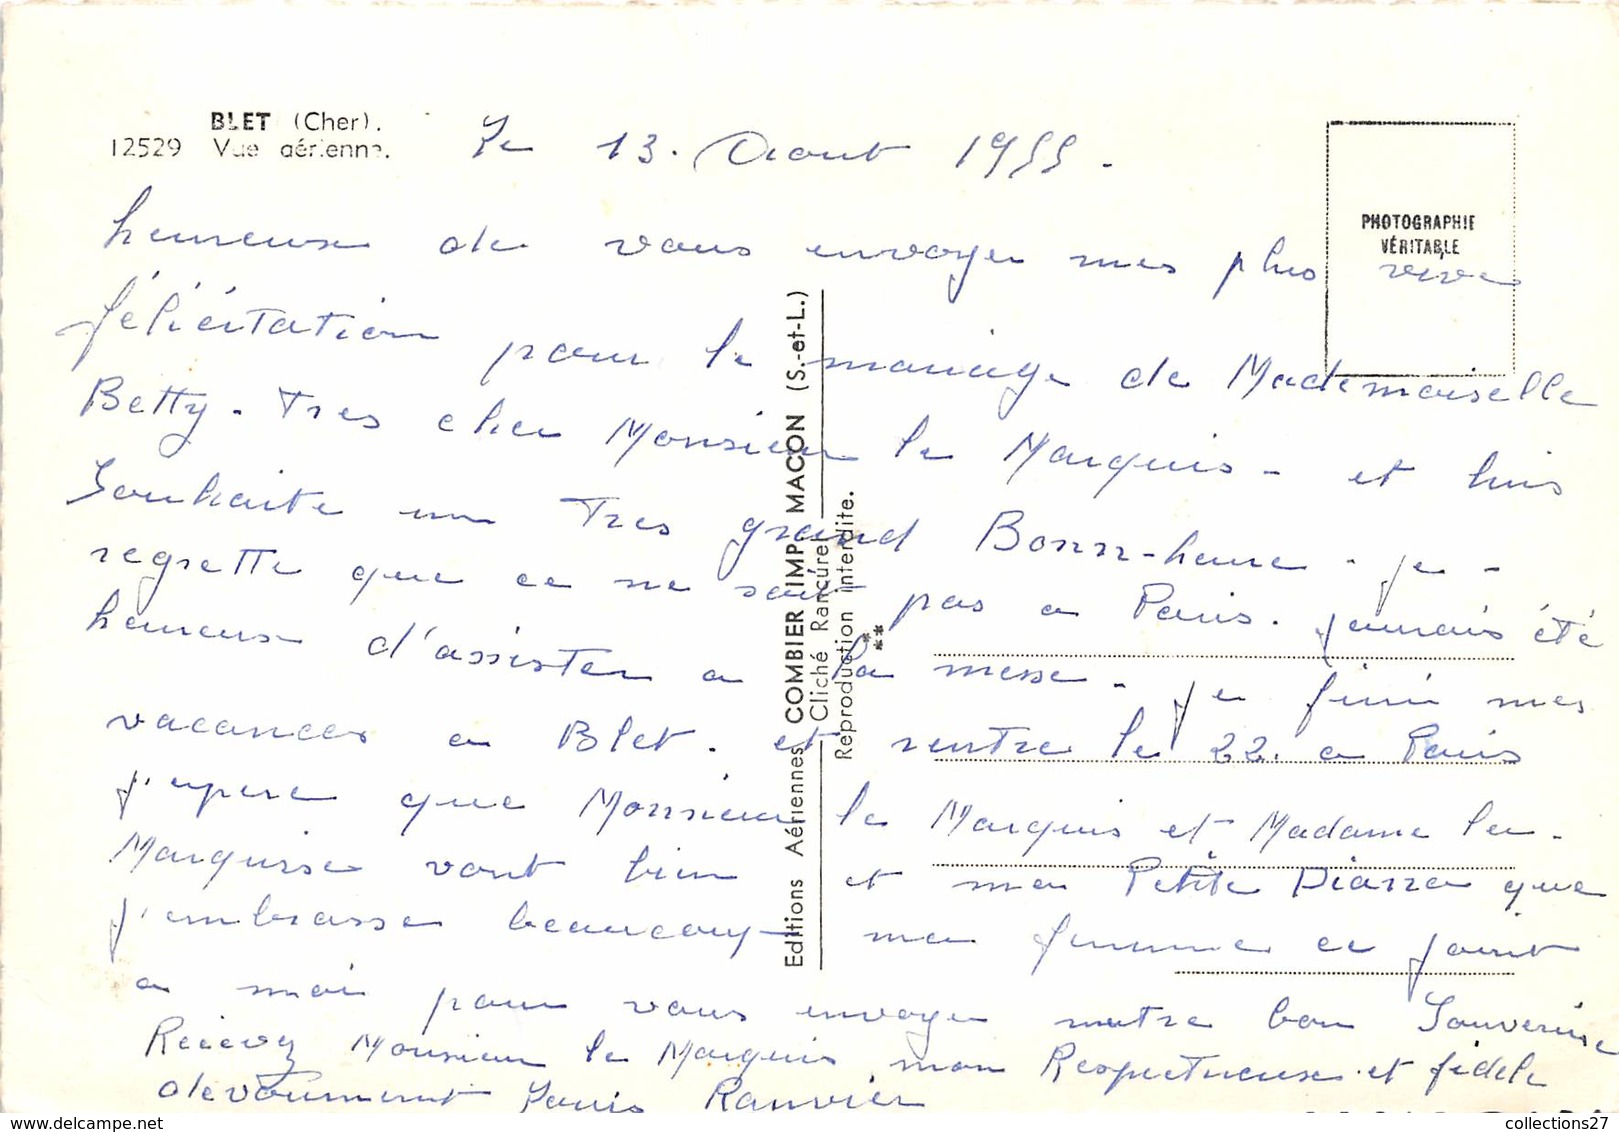 BLET (Cher).
12529 Vue aérienne.
Le 13. Aout 1955.
PHOTOGRAPHIE
VÉRITABLE
heureuse de vous envoyer mes plus vive
féliéitation pour le mariage de Mademoiselle
Betty. Tres cher Monsieur le Marquis - et luis
Souhaite un Tres grand Bonn-heure. je -
regrette que ce ne soit pas a Paris. jaurais été
heureuse d'assister a la messe. je fini mes
vacances a Blet. et rentre le 22. a Paris
j'espere que Monsieur le Marquis et Madame la.
Marquise vont bien et ma Petite que
j'embrasse beaucoup ma femme ce joint
a moi pour vous envoyer notre bon Souvenir
Recevez Monsieur le Marquis mon Respectueuse et fidele
devoument Louis Ranvier
Editions Aériennes COMBIER IMP MACON (S.-et-L.)
Cliché Rancurel
Reproduction interdite.
collections27